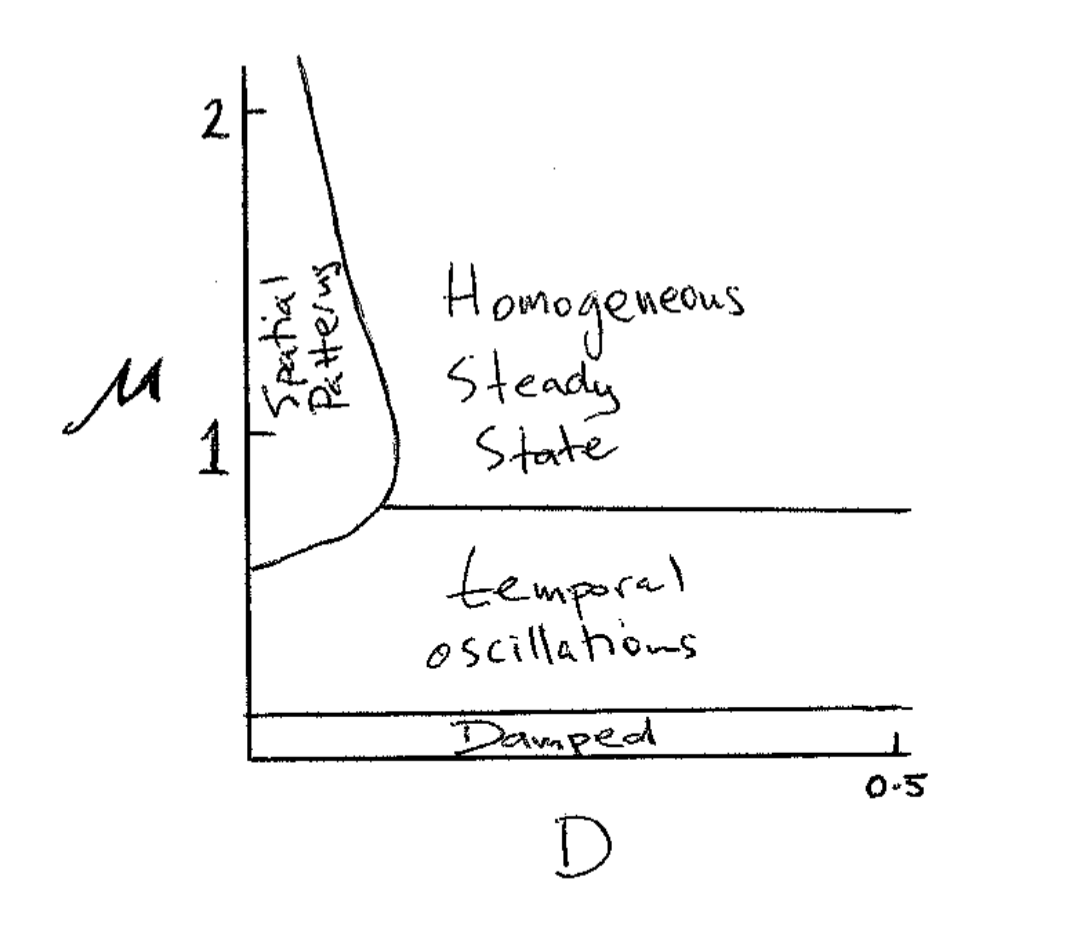 2
Spatial
Patterns
Homogeneous
Steady
State
μ
1
temporal
oscillations
Damped
0.5
D